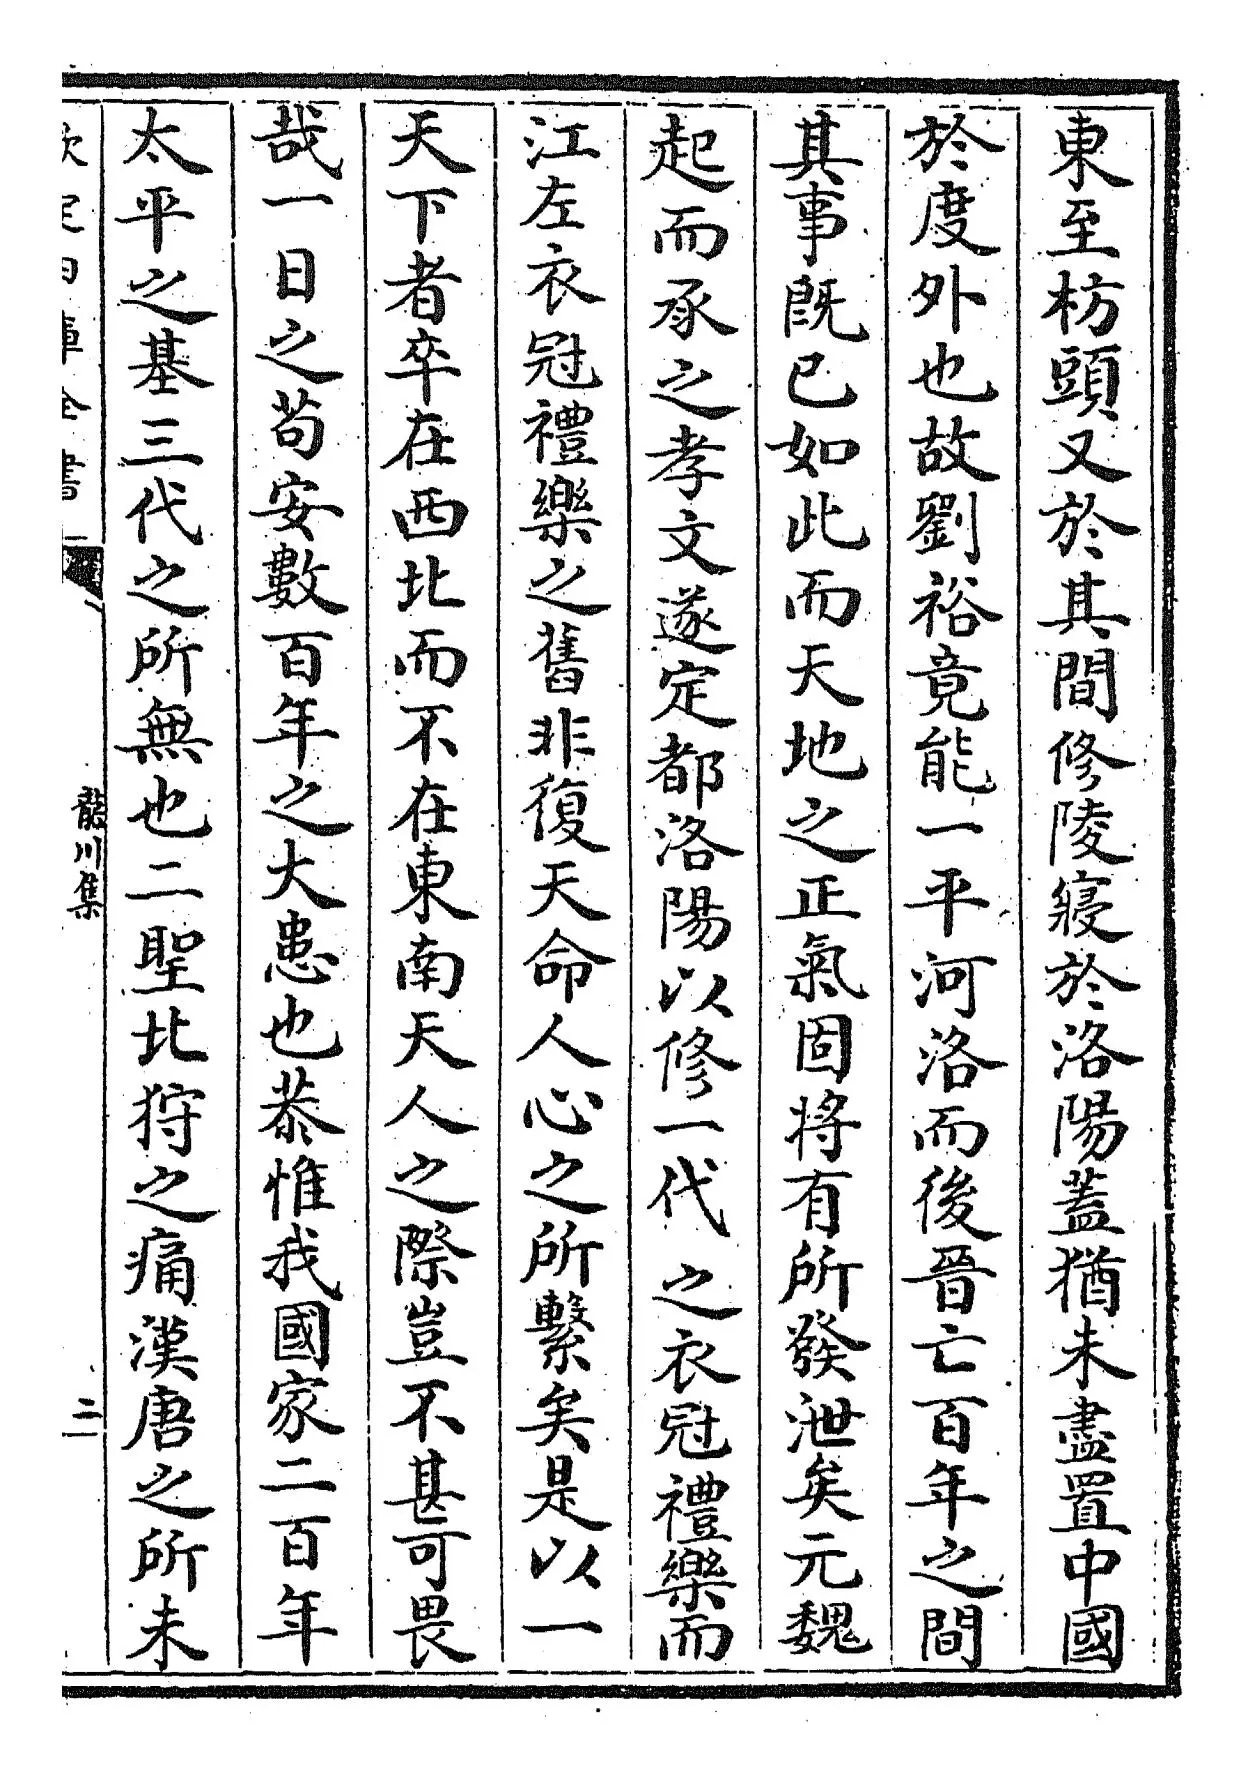 東至枋頭又於其間修陵寢於洛陽蓋猶未盡置中國
於度外也故劉裕竟能一平河洛而後晉亡百年之間
其事旣已如此而天地之正氣固將有所發泄矣元魏
起而承之孝文遂定都洛陽以修一代之衣冠禮樂而
江左衣冠禮樂之舊非復天命人心之所繫矣是以一
天下者卒在西北而不在東南天人之際豈不甚可畏
哉一日之苟安數百年之大患也恭惟我國家二百年
太平之基三代之所無也二聖北狩之痛漢唐之所未
欽定四庫全書
龍川集
二